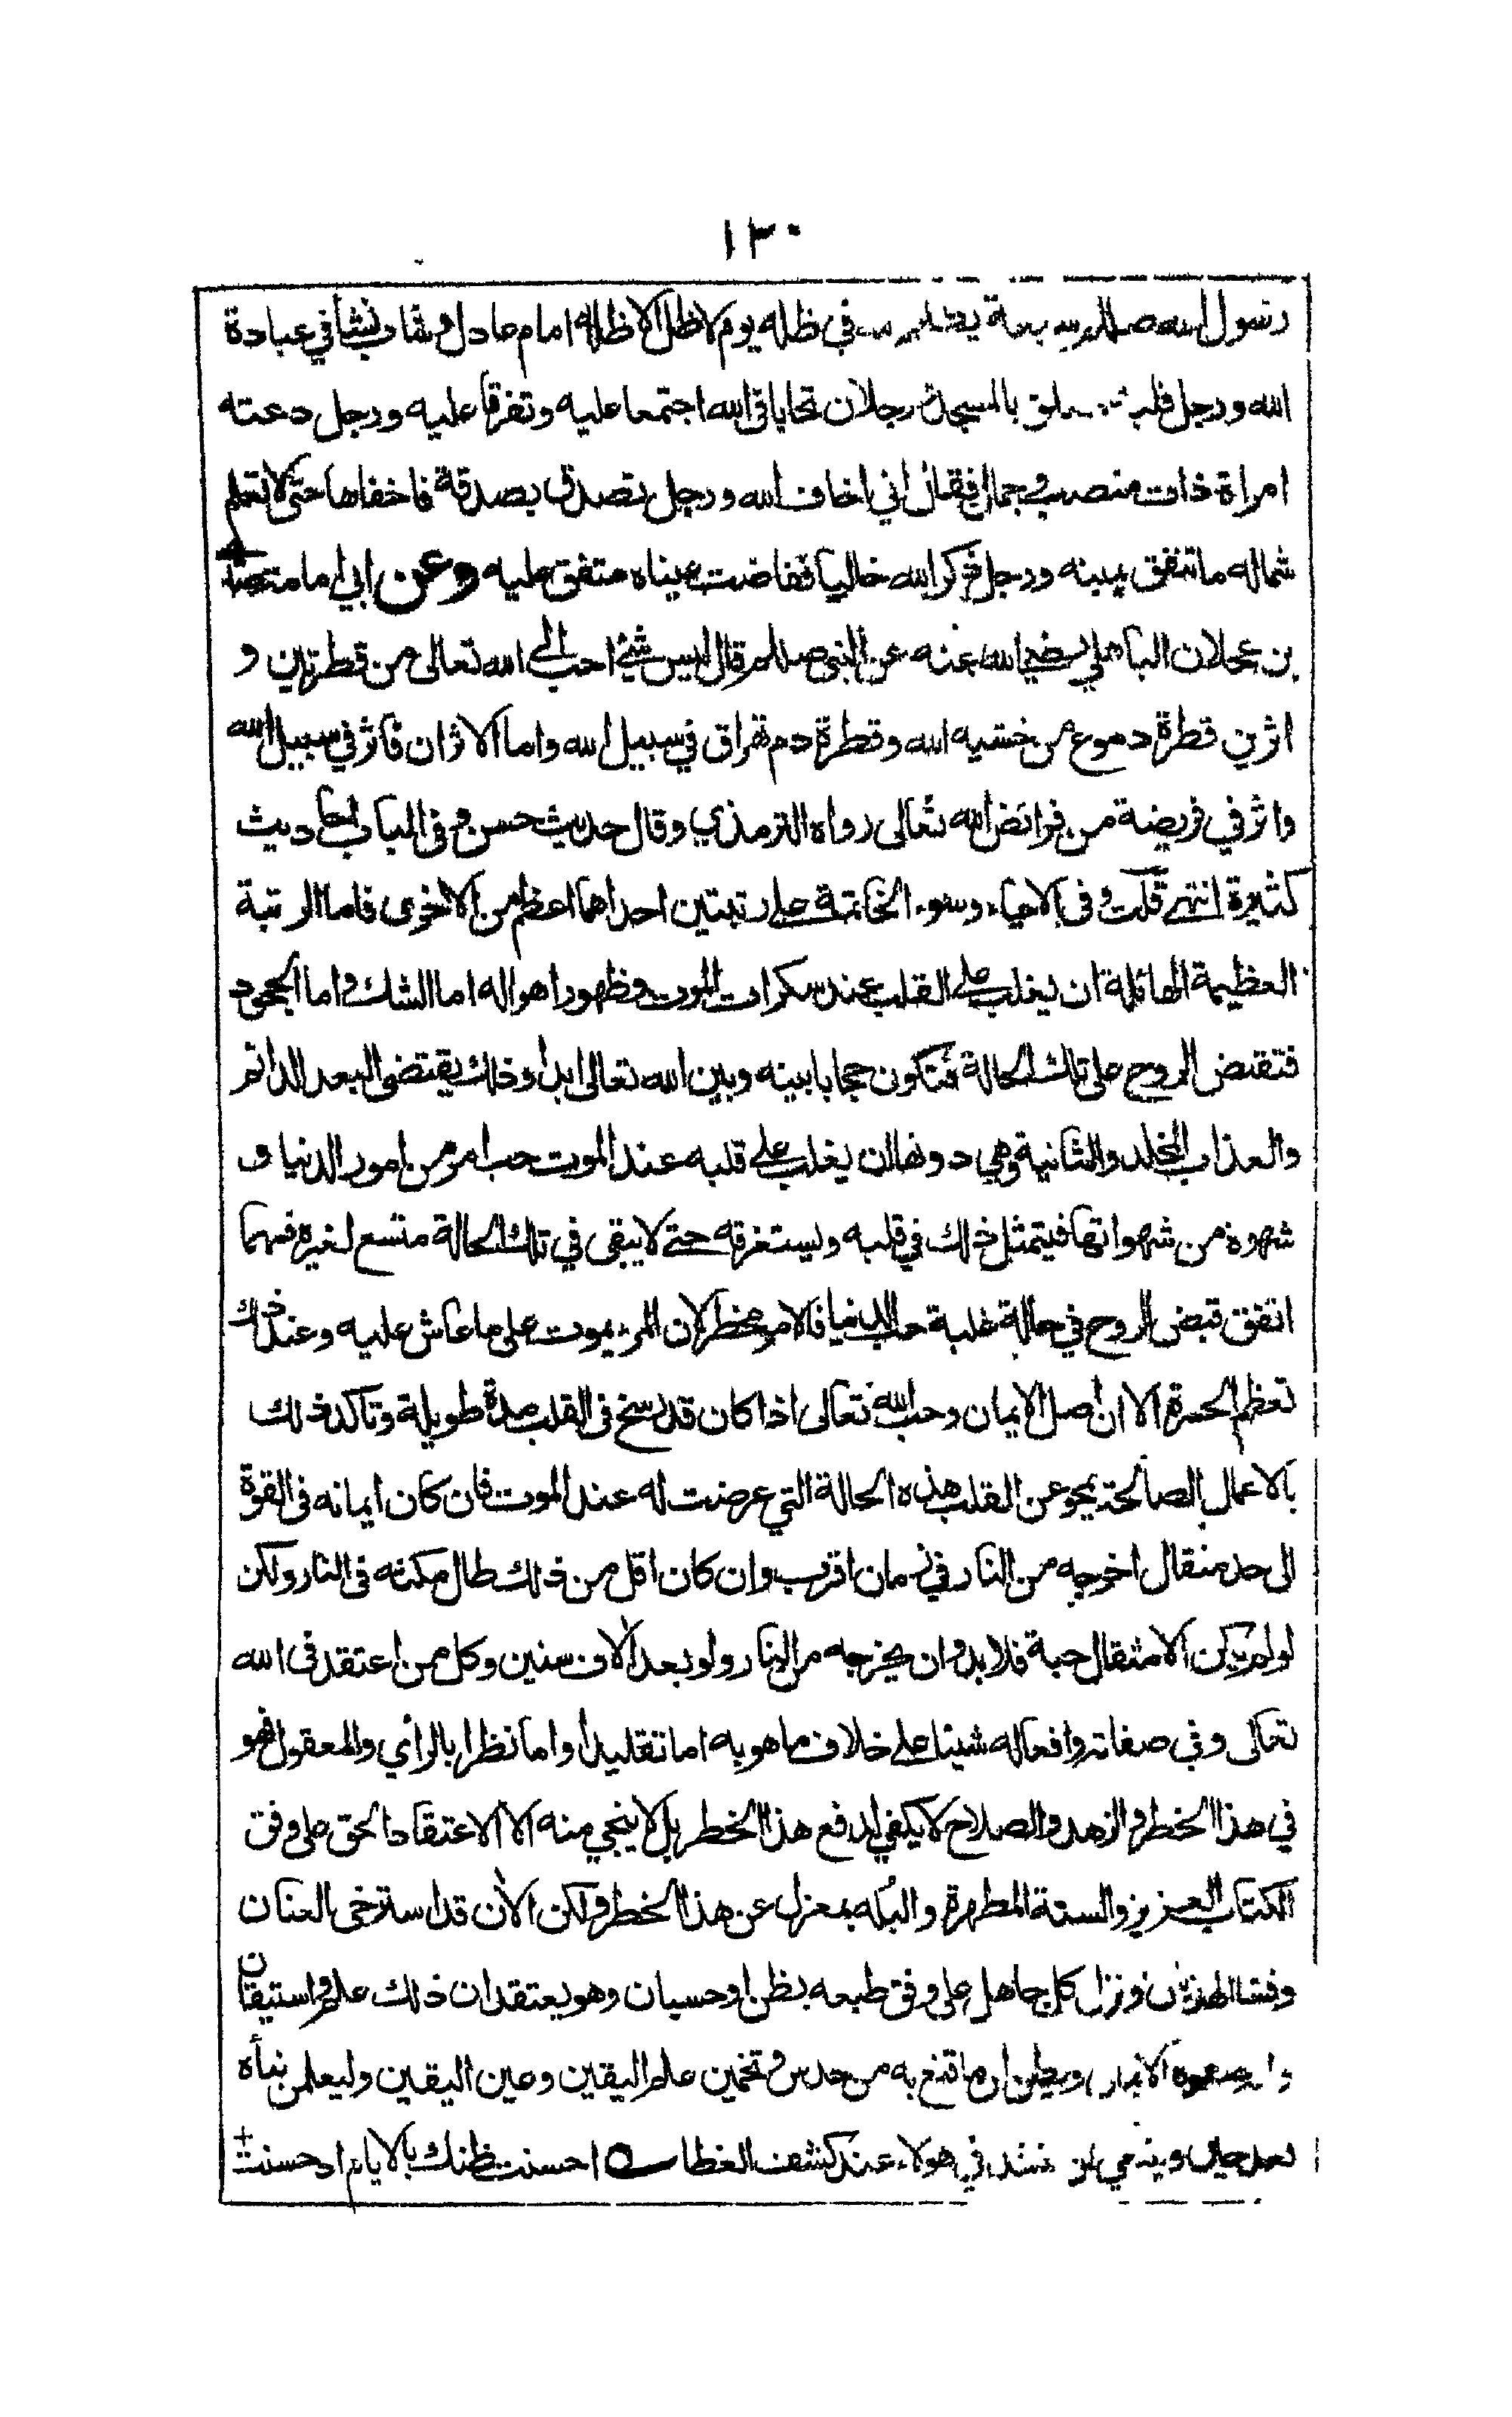 ١٣٠
رسول الله صللم سبعة يظلهم الله في ظله يوم لا ظل الا ظله امام عادل وشاب نشأ في عبادة
الله ورجل قلبه معلق بالمسجد ورجلان تحابا في الله اجتمعا عليه وتفرقا عليه ورجل دعته
امراة ذات منصب وجمال فقال اني اخاف الله ورجل تصدق بصدقة فاخفاها حتى لا تعلم
شماله ما تنفق يمينه ورجل ذكر الله خاليا ففاضت عيناه متفق عليه وعن ابي امامة صدي
بن عجلان الباهلي رضي الله عنه عن النبي صللم قال ليس شيئ احب الى الله تعالى من قطرتين و
اثرين قطرة دموع من خشيه الله وقطرة دم تهراق في سبيل الله واما الاثران فاثر في سبيل الله
واثر في فريضة من فرائض الله تعالى رواه الترمذي وقال حديث حسن وفى الباب احاديث
كثيرة انتهى قلت وفى الاحياء وسوء الخاتمة على رتبتين احداهما اعظم من الاخرى فاما الرتبة
العظيمة الهائلة ان يغلب على القلب عند سكرات الموت وظهور اهواله اما الشك واما الجحود
فتقبض الروح على تلك الحالة فتكون حجابا بينه وبين الله تعالى ابدا وذلك يقتضى البعد الدائم
والعذاب المخلد والثانية وهي دونها ان يغلب على قلبه عند الموت حب امر من امور الدنيا و
شهوة من شهواتها فيتمثل ذلك في قلبه ويستغرقه حتى لا يبقى في تلك الحالة متسع لغيره فمهما
اتفق قبض الروح في حالة غلبة حب الدنيا فالامر مخطر لان المرء يموت على ما عاش عليه وعند ذلك
تعظم الحسرة الا ان اصل الايمان وحب الله تعالى اذا كان قد رسخ فى القلب مدة طويلة وتاكد ذلك
بالاعمال الصالحة يمحو عن القلب هذه الحالة التي عرضت له عند الموت فان كان ايمانه فى القوة
الى حد مثقال اخرجه من النار في زمان اقرب وان كان اقل من ذلك طال مكثه فى النار ولكن
لو لم يكن الا مثقال حبة فلا بد وان يخرجه من النار ولو بعد آلاف سنين وكل من اعتقد فى الله
تعالى وفي صفاته وافعاله شيئا على خلاف ما هو به اما تقليدا واما نظرا بالرأي والمعقول فهو
في هذا الخطر والزهد والصلاح لا يكفي لدفع هذا الخطر بل لا ينجي منه الا الاعتقاد الحق على وفق
الكتاب العزيز والسنة المطهرة والبله بمعزل عن هذا الخطر ولكن الآن قد استرخى العنان
وفشا الهذيان ونزل كل جاهل على وفق طبعه بظن او حسبان وهو يعتقد ان ذلك علم واستيقان
وانه صفوة الايمان ويظن ان ما قنع به من حدس وتخمين علم اليقين وعين اليقين وليعلمن نبأه
بعد حين وينبغي ان ينشد في هولاء عند كشف الغطا احسنت ظنك بالايام اذ حسنت